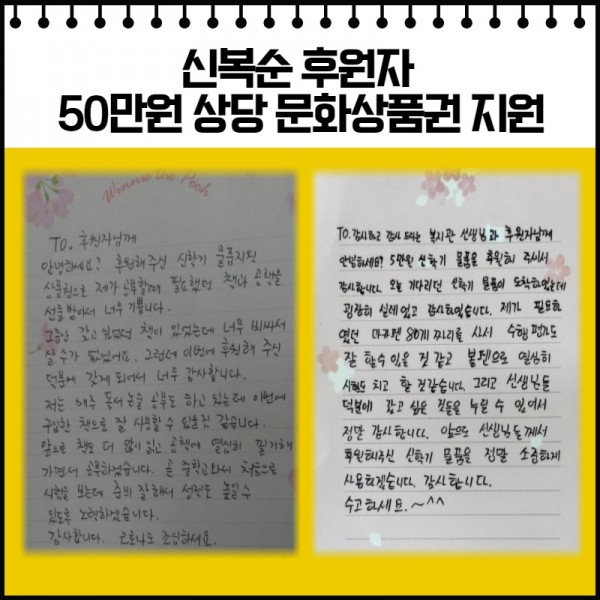 신복순 후원자
50만원 상당 문화상품권 지원
Winnie the Pooh
TO. 후원자님께
안녕하세요? 후원해주신 신학기 물품지원
상품권으로 제가 공부할때 필요했던 책과 공책을
선물 받아서 너무 기쁩니다.
그동안 갖고 싶었던 책이 있었는데 너무 비싸서
살 수가 없었어요. 그런데 이번에 후원해 주신
덕분에 갖게 되어서 너무 감사합니다.
저는 매주 독서논술 공부도 하고 있는데 이번에
구입한 책으로 잘 사용할 수 있을것 같습니다.
앞으로 책도 더 많이 읽고 공책에 열심히 필기해
가면서 공부하겠습니다. 곧 중학교와서 처음으로
시험을 보는데 준비 잘해서 성적도 높일수
있도록 노력하겠습니다.
감사합니다. 코로나도 조심하세요.
TO. 감사하고 감사 드리는 복지관 선생님과 후원자님께
안녕하세요? 5만원 신학기 물품을 후원해 주셔서
감사합니다. 오늘 기다리던 신학기 물품이 도착하였는데
굉장히 설레었고 감사하였습니다. 제가 필요하
였던 마카펜 80개 짜리를 사서 수행평가도
잘 할수 있을 것 같고 볼펜으로 열심히
시험도 치고 할 것같습니다. 그리고 선생님들
덕분에 갖고 싶은 것들을 누릴 수 있어서
정말 감사합니다. 앞으로 선생님들께서
후원해주신 신학기 물품을 정말 소중하게
사용하겠습니다. 감사합니다.
수고하세요. ~^^